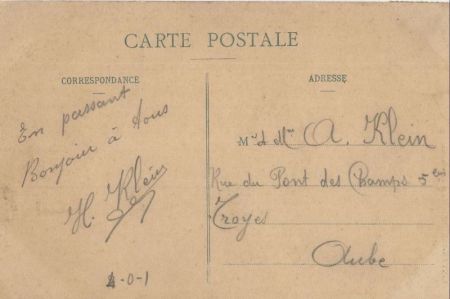 CARTE POSTALE
CORRESPONDANCE
ADRESSE
En passant
Bonjour à tous
H. Klein
4-0-1
Mr d Mme A. Klein
Rue du Pont des Champs 5 bis
Troyes
Aube